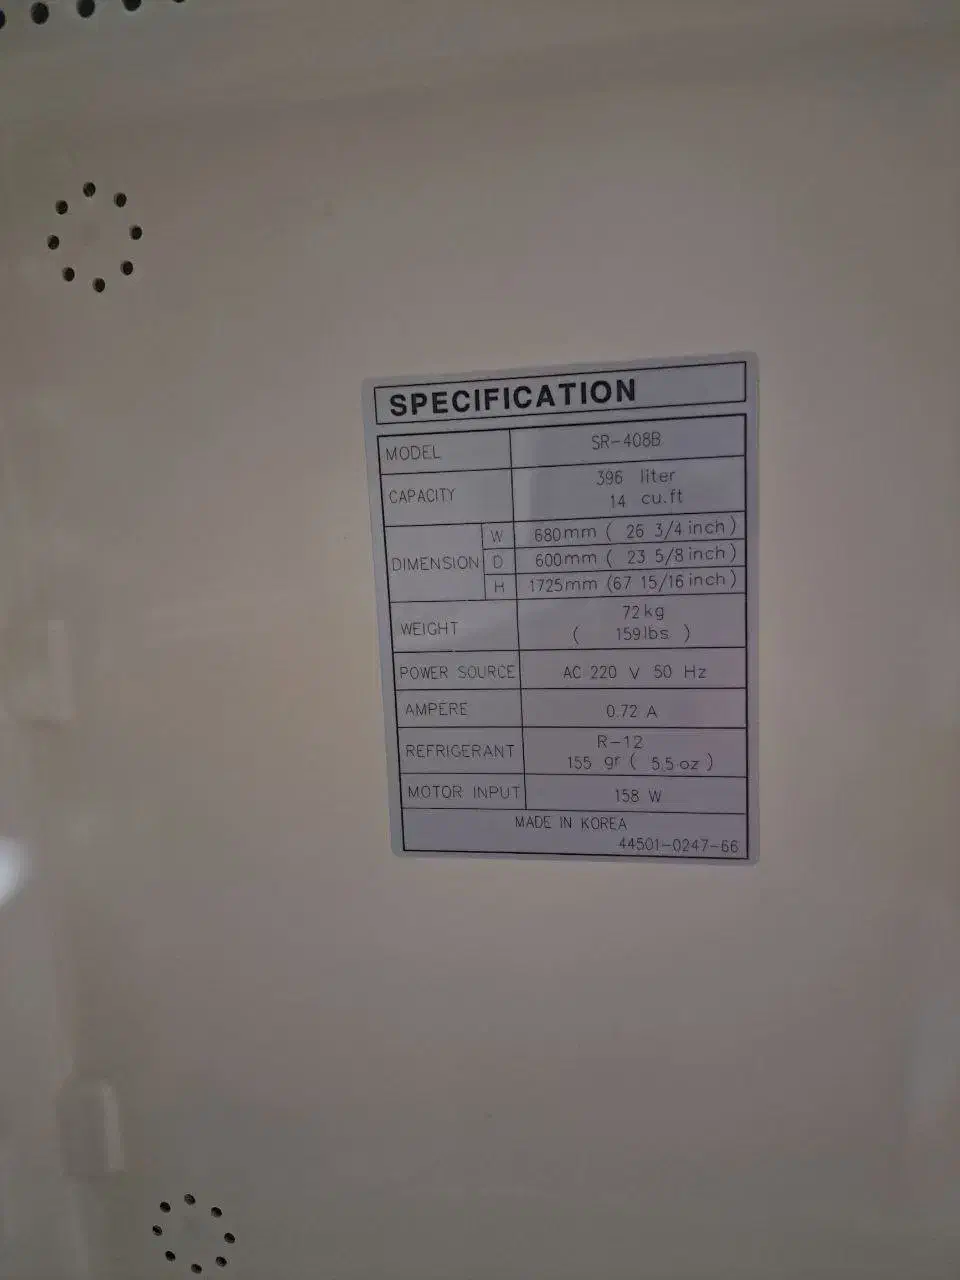 SPECIFICATION
MODEL SR-408B
CAPACITY 396 liter
14 cu.ft
DIMENSION W 680mm ( 26 3/4 inch )
D 600mm ( 23 5/8 inch )
H 1725mm (67 15/16 inch )
WEIGHT 72kg
( 159lbs )
POWER SOURCE AC 220 V 50 Hz
AMPERE 0.72 A
REFRIGERANT R-12
155 gr ( 5.5 oz )
MOTOR INPUT 158 W
MADE IN KOREA
44501-0247-66